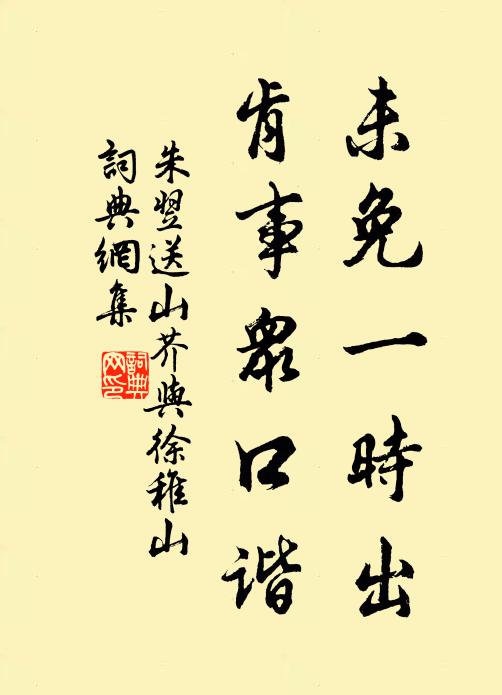 未免一時出
肯事眾口谐
朱翌送山芥與徐稚山
詞典網集
詞典网印